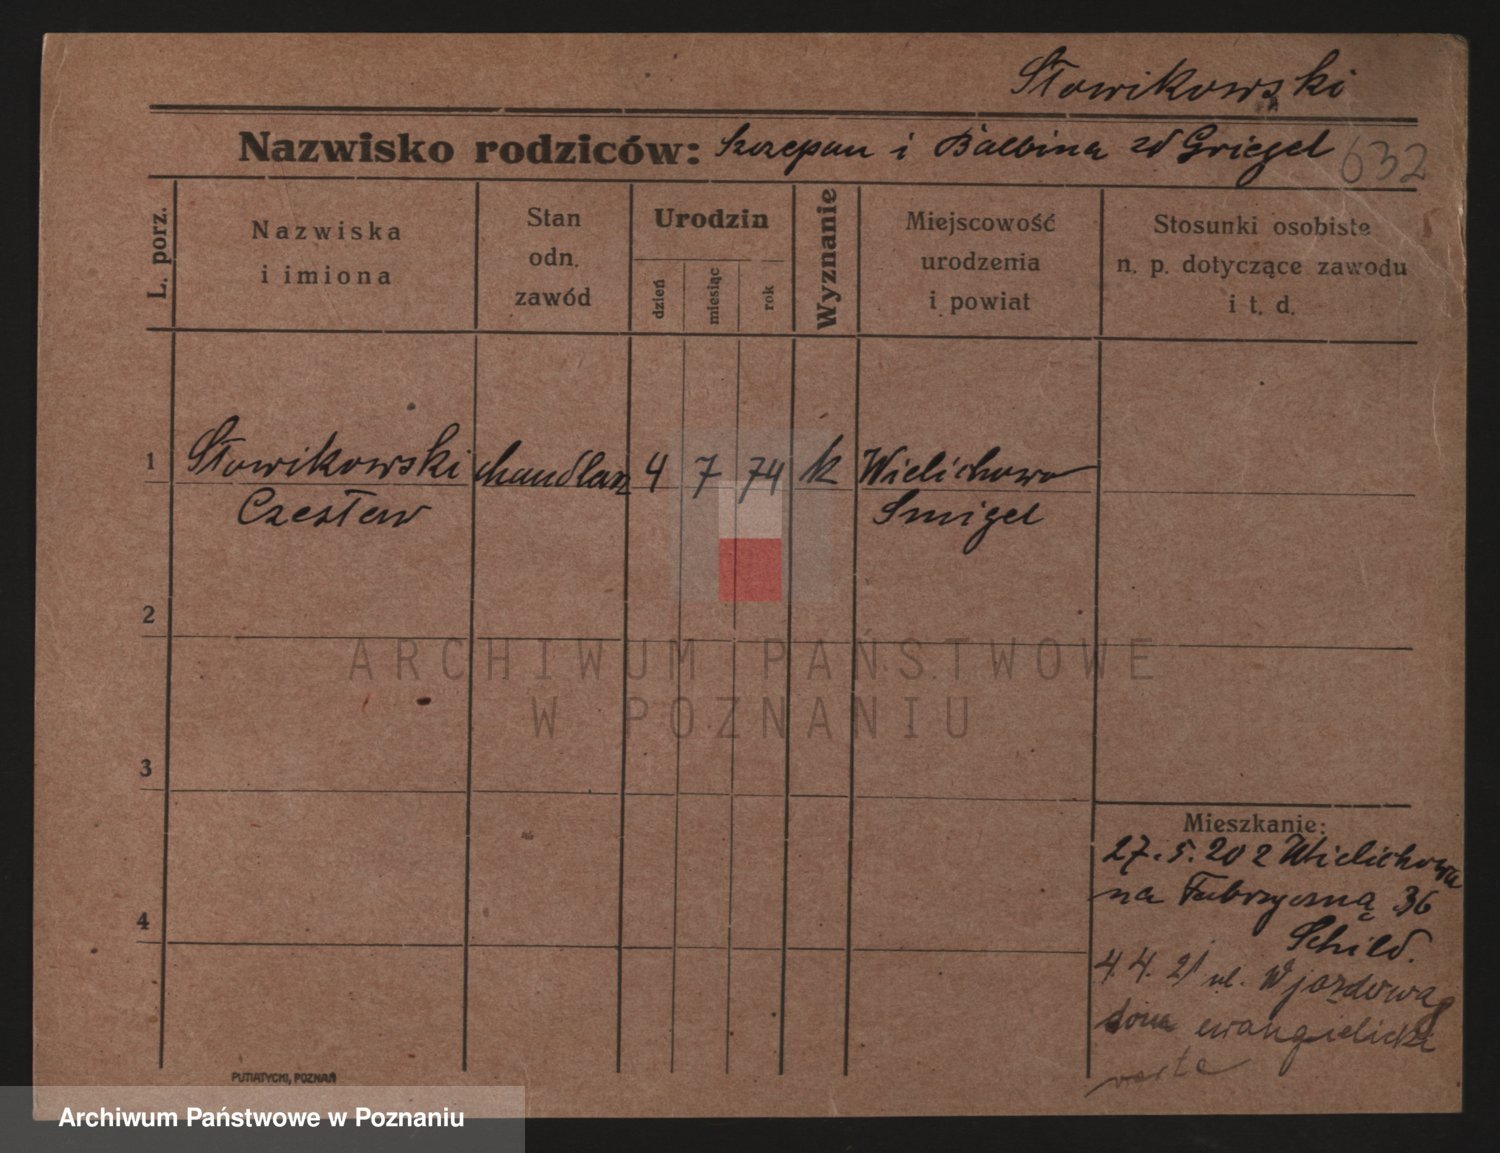 Słowikowski
Nazwisko rodziców: Szczepan i Balbina zd Griegel 632
L. porz.
Nazwiska
i imiona
Stan
odn.
zawód
Urodzin
dzień
miesiąc
rok
Wyznanie
Miejscowość
urodzenia
i powiat
Stosunki osobiste
n. p. dotyczące zawodu
i t. d.
1 Słowikowski handlarz 4 7 74 k Wielichowo
Czesław Smigel
2
ARCHIWUM PAŃSTWOWE
W POZNANIU
3
Mieszkanie:
27.5.20 z Wielichowa
na Fabryczną 36
4
Schild.
4.4.21 ul. Wjazdowa 8
dom ewangielicki
PUTIATYCKI, POZNAŃ
Archiwum Państwowe w Poznaniu